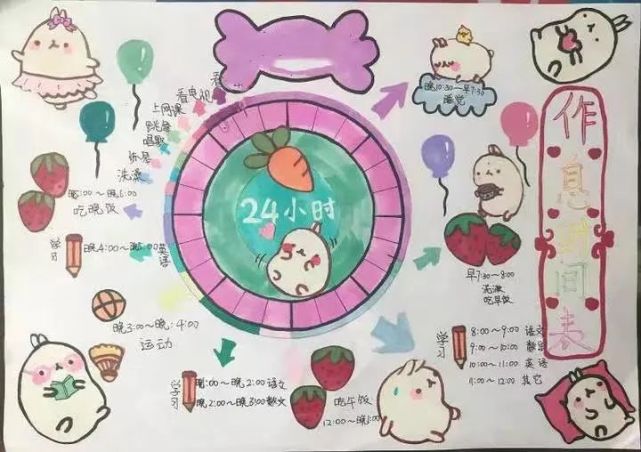 作息时间表
24小时
看电视
上网课
跳舞
唱歌
练琴
洗澡
晚5:00~晚6:00
吃晚饭
学习
晚4:00~晚5:00英语
晚3:00~晚4:00
运动
学习
晚1:00~晚2:00语文
晚2:00~晚3:00数文
吃午饭
12:00~晚1:00
学习
8:00~9:00 语文
9:00~10:00 数学
10:00~11:00 英语
11:00~12:00 其它
早7:30~8:00
洗漱
吃早饭
晚10:30~早7:30
睡觉